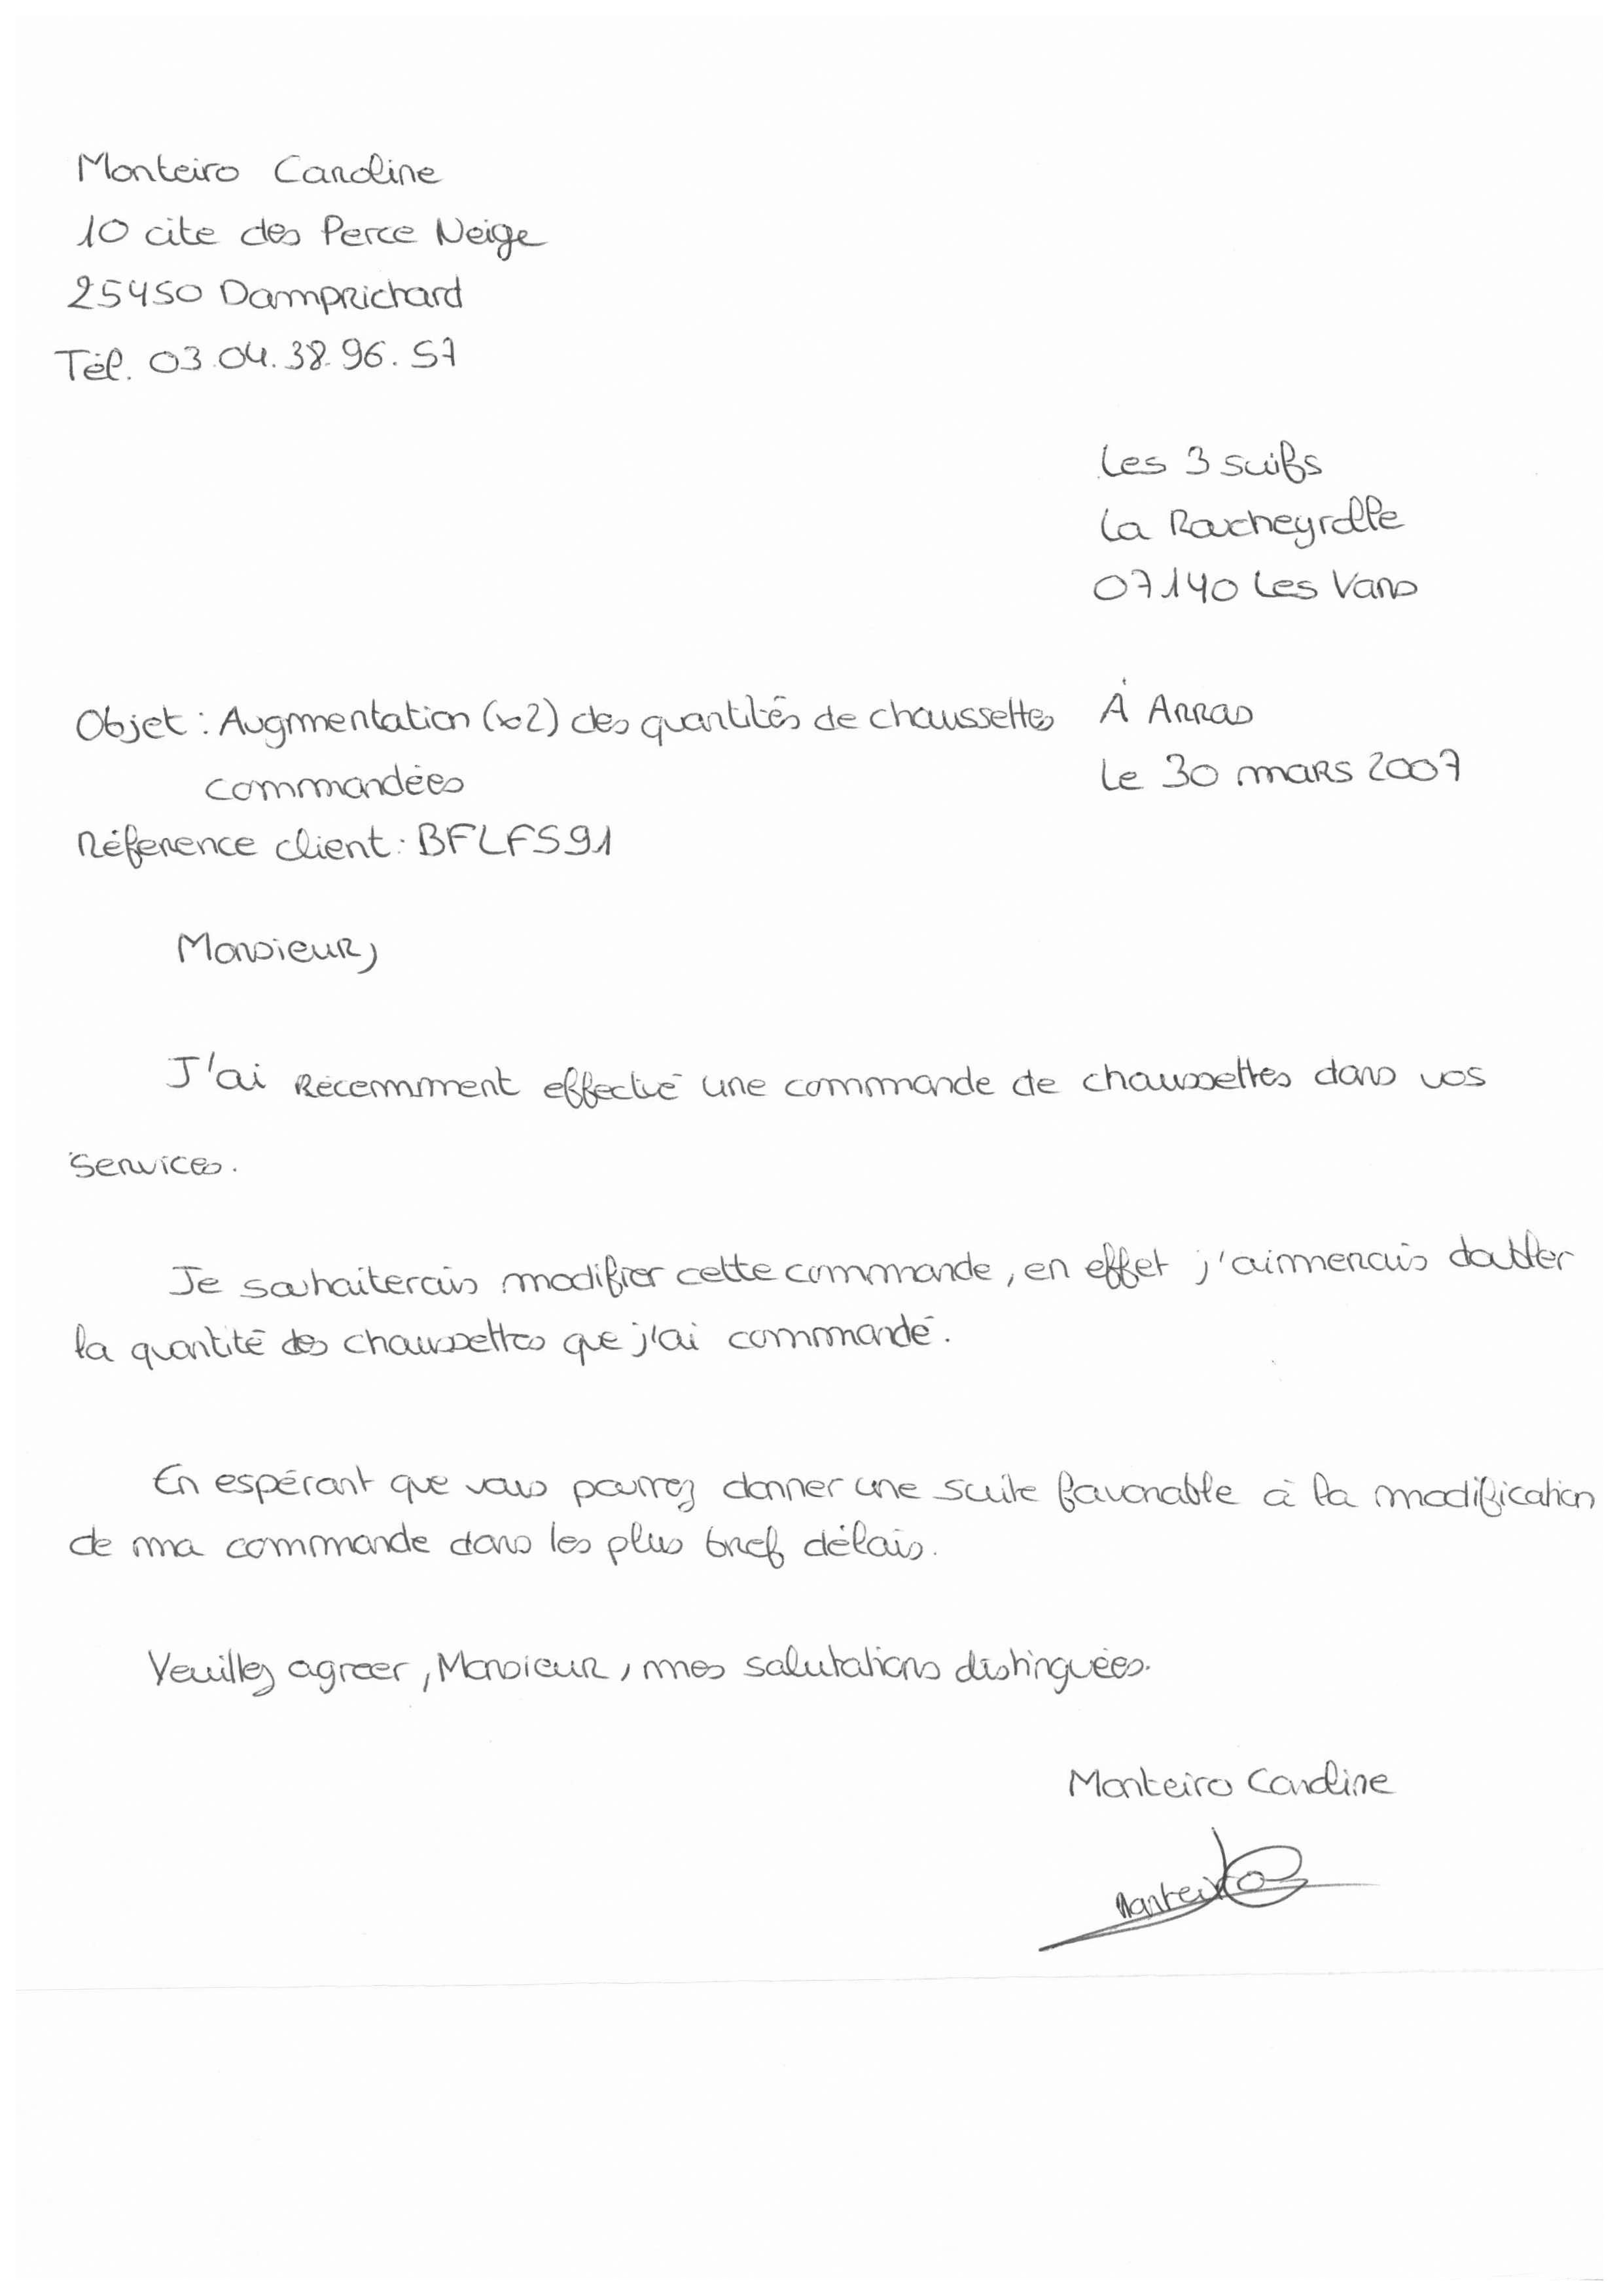 Monteiro Caroline
10 cite des Perce Neige
25450 Damprichard
Tél. 03.04.38.96.57
Les 3 suifs
La Racheyrolle
07140 Les Vans
Objet : Augmentation (x2) des quantités de chaussettes
commandées
À Arras
Le 30 mars 2007
Réference client : BFLFS91
Monsieur,
J'ai Récemment effectué une commande de chaussettes dans vos
services.
Je souhaiterais modifier cette commande, en effet j'aimerais doubler
la quantité des chaussettes que j'ai commandé.
En espérant que vous pourrez donner une suite favorable à la modification
de ma commande dans les plus bref délais.
Veuillez agreer, Monsieur, mes salutations distinguées.
Monteiro Caroline
Monteiro